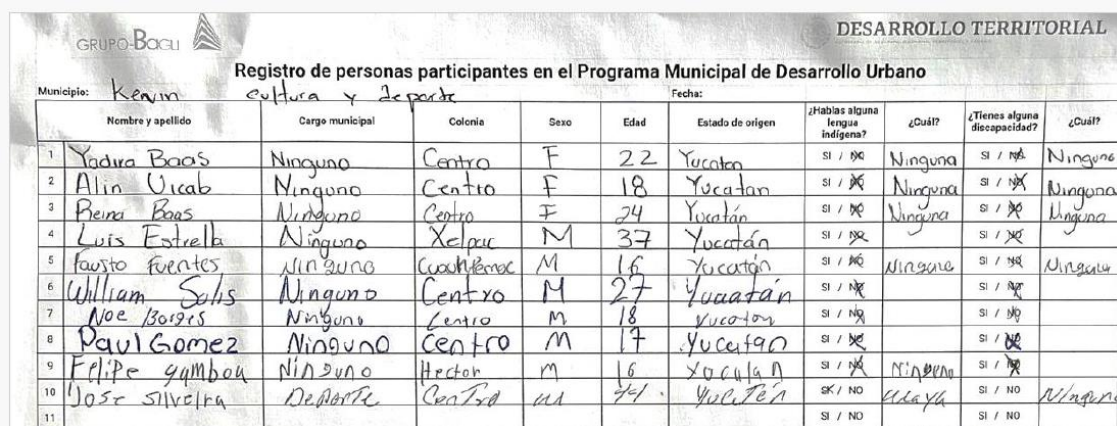 GRUPO-BAGLI
DESARROLLO TERRITORIAL
Registro de personas participantes en el Programa Municipal de Desarrollo Urbano
Municipio: Kenvin cultura y deporte Fecha:
Nombre y apellido Cargo municipal Colonia Sexo Edad Estado de origen ¿Hablas alguna lengua indígena? ¿Cuál? ¿Tienes alguna discapacidad? ¿Cuál?
1 Yadira Baas Ninguno Centro F 22 Yucatan SI / NO Ninguna SI / NO Ninguna
2 Alin Uicab Ninguno Centro F 18 Yucatan SI / NO Ninguna SI / NO Ninguna
3 Reina Baas Ninguno Centro F 24 Yucatán SI / NO Ninguna SI / NO Ninguna
4 Luis Estrella Ninguno Xelpac M 37 Yucatán SI / NO SI / NO
5 Fausto Fuentes Ninguno M 16 Yucatán SI / NO SI / NO
6 William Solis Ninguno Centro M 27 Yucatán SI / NO SI / NO
7 Noe Borges Ninguno Centro M 18 Yucatan SI / NO SI / NO
8 Paul Gomez Ninguno Centro M 17 Yucatan SI / NO SI / NO
9 Felipe gamboa Ninguno Hector M 16 SI / NO Ninguno SI / NO
10 Jose Silveira Deporte Centro M SI / NO Maya SI / NO Ninguno
11 SI / NO SI / NO